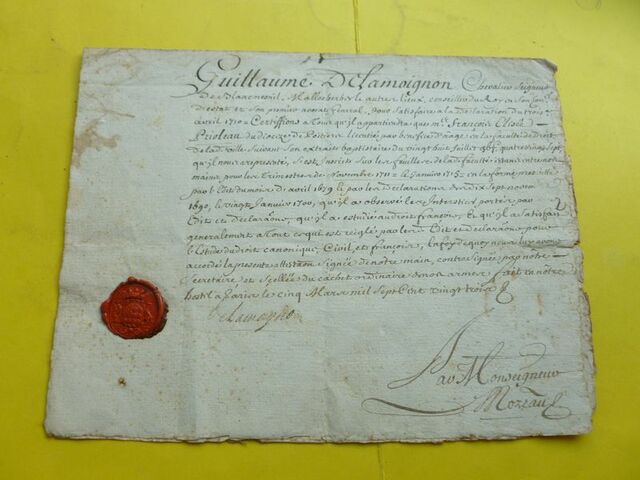 Guillaume. De Lamoignon Chevalier Seigneur
De Blancmesnil, Mallesherbes & autres lieux, conseiller du Roy en son Conseil
destat et son premier avocat general, pour satisfaire a la Declaration du trois
avril 1710 Certiffions a tous qu'il appartiendra que Mr. François Elisée
Prioleau du Dioceze de Poitiers Licentié par benefice d'age en la faculté de Droit
de lad. ville suivant son extraits baptistaire du vingt huit juillet quatre vingt sept
qu'il nous a representé, s'est inscrit sur les feuilles de lad. faculté estans entre nos
mains, pour les Trimestres de Novembre & Janvier en la forme prescritte
par l'Edit du mois d'avril 1679 & par les Declarations des dix sept novem.
1690, le vingt Janvier 1700, qu'il a observé les Interstices portez par
Edit et Declarãons, qu'il a estudié au droit françois, & qu'il a satisfait
generalement a tout ce qui est reiglé par les Edit et Declarãons pour
l'Estude du Droit canonique, Civil, et françois, En foy dequoy nous luy avons
accordé la presente attestaõn signée de notre main, contresignée par notre
Secretaire et scellée du cachet ordinaire de nos armes fait en notre
hostel a Paris le cinq Mars mil sept Cent vingt trois
Delamoignon
Par Monseigneur
Moreau